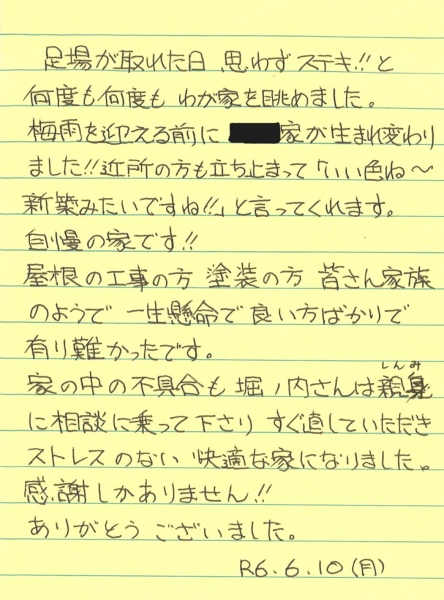 足場が取れた日 思わずステキ!!と
何度も何度も わが家を眺めました。
梅雨を迎える前に 家が生まれ変わり
ました!!近所の方も立ち止まって「いい色ね〜
新築みたいですね!!」と言ってくれます。
自慢の家です!!
屋根の工事の方 塗装の方 皆さん家族
のようで 一生懸命で 良い方ばかりで
有り難かったです。
しんみ
家の中の不具合も 堀ノ内さんは親身
に相談に乗って下さり すぐ直していただき
ストレスのない 快適な家になりました。
感謝しかありません!!
ありがとう ございました。
R6.6.10(月)